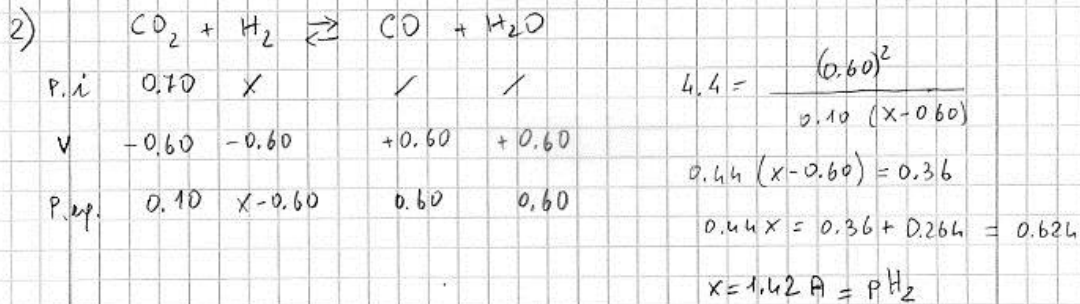 2) CO₂ + H₂ ⇄ CO + H₂O
P.i 0.70 x / /
V -0.60 -0.60 +0.60 +0.60
P.eq. 0.10 x-0.60 0.60 0.60
4.4 = (0.60)² / 0.10 (x-0.60)
0.44 (x-0.60) = 0.36
0.44x = 0.36 + 0.264 = 0.624
x = 1.42 A = pH₂